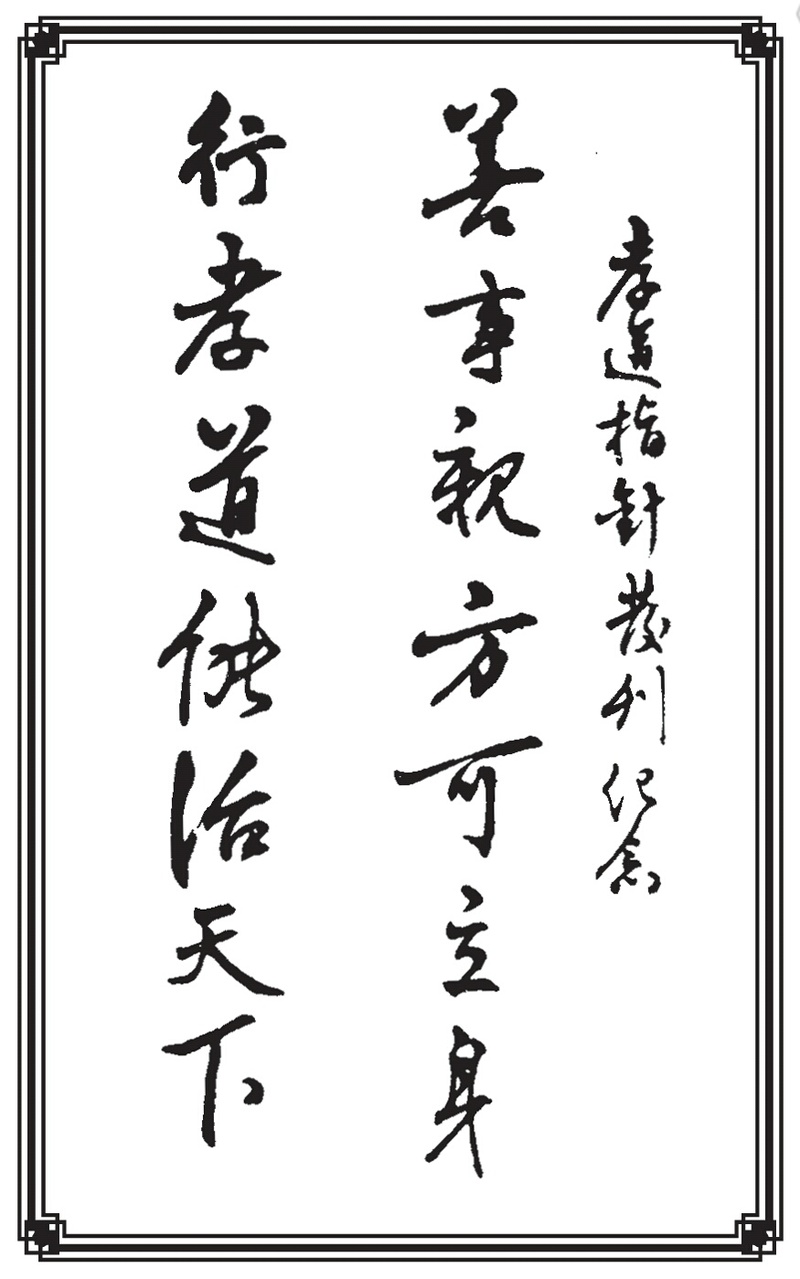 孝道指針發刊紀念
善事親方可立身
行孝道能治天下